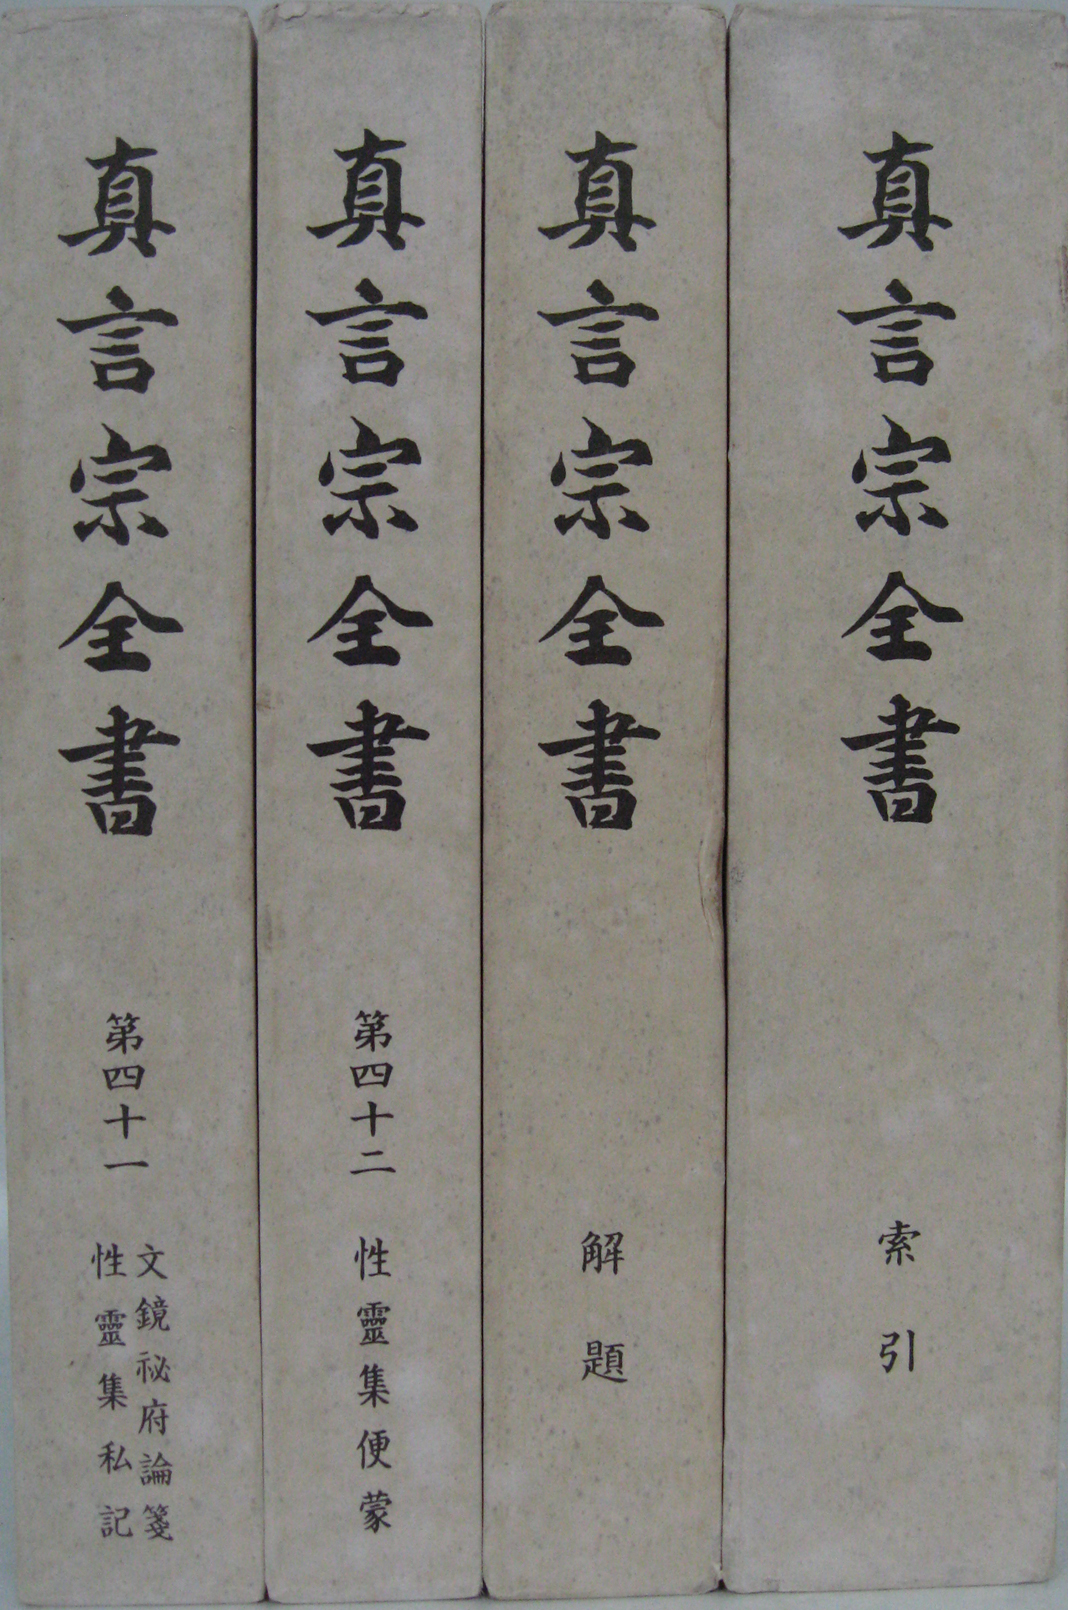 真言宗全書
第四十一
文鏡祕府論箋
性靈集私記
真言宗全書
第四十二
性靈集便蒙
真言宗全書
解題
真言宗全書
索引